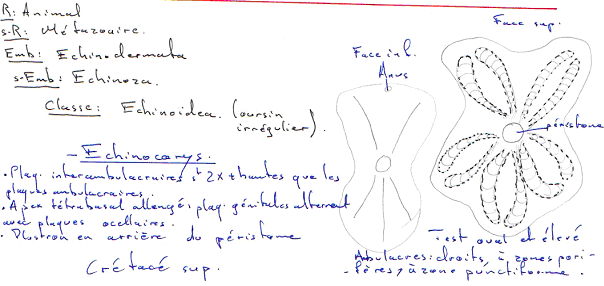 R: Animal
s-R: Métazoaire.
Emb: Echinodermata
s-Emb: Echinozoa.
Classe: Echinoidea. (oursin
irrégulier).
- Echinocorys.
• Plaq. intercambulacraires st 2x + hautes que les
plaques ambulacraires.
• Apex tétrabasal allongé : plaq. génitales alternent
avec plaques ocellaires.
• Plastron en arrière du péristome
Crétacé sup.
Face inf.
Anus
Face sup.
péristome
- est oval et élevé
Abulacres: droits, à zones pori-
- fères, à zone punctiforme.